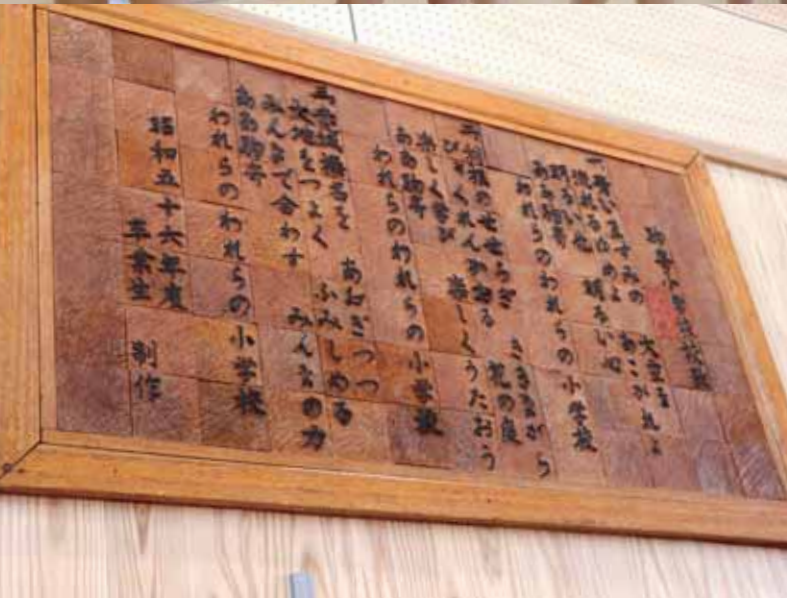 駒寄小学校校歌
一、青いますみの 大空を
流れるゆめよ あこがれよ
明るい 明るい心
ああ駒寄
われらのわれらの小学校
二 のせせらぎ ききながら
びゃくれんかおる 花の庭
楽しく学び 楽しくうたおう
ああ駒寄
われらのわれらの小学校
三 赤城榛名を あおぎつつ
大地をつよく ふみしめる
みんなで合わす みんなの力
ああ駒寄
われらのわれらの小学校
昭和五十六年度
卒業生 制作